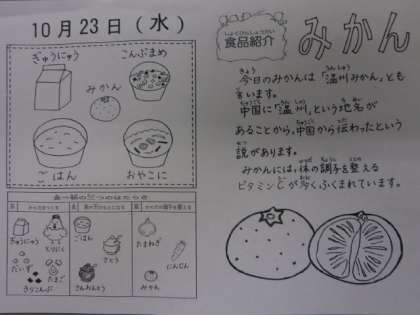 10月23日(水)
ぎゅうにゅう
こんぶまめ
みかん
ごはん
おやこに
食品紹介
みかん
今日のみかんは「温州みかん」とも
言います。
中国に「温州」という地名が
あることから、中国から伝わったという
説があります。
みかんには、体の調子を整える
ビタミンCが多くふくまれています。
ぎゅうにゅう
とりにく
だいず
たまご
きりこんぶ
ごはん
さとう
さんおんとう
たまねぎ
にんじん
みかん